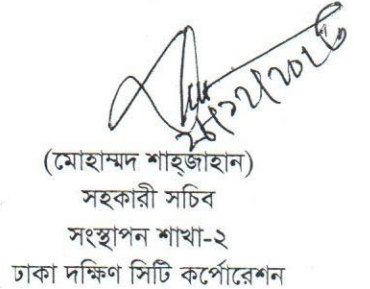 (মোহাম্মদ শাহ্জাহান)
সহকারী সচিব
সংস্থাপন শাখা-২
ঢাকা দক্ষিণ সিটি কর্পোরেশন